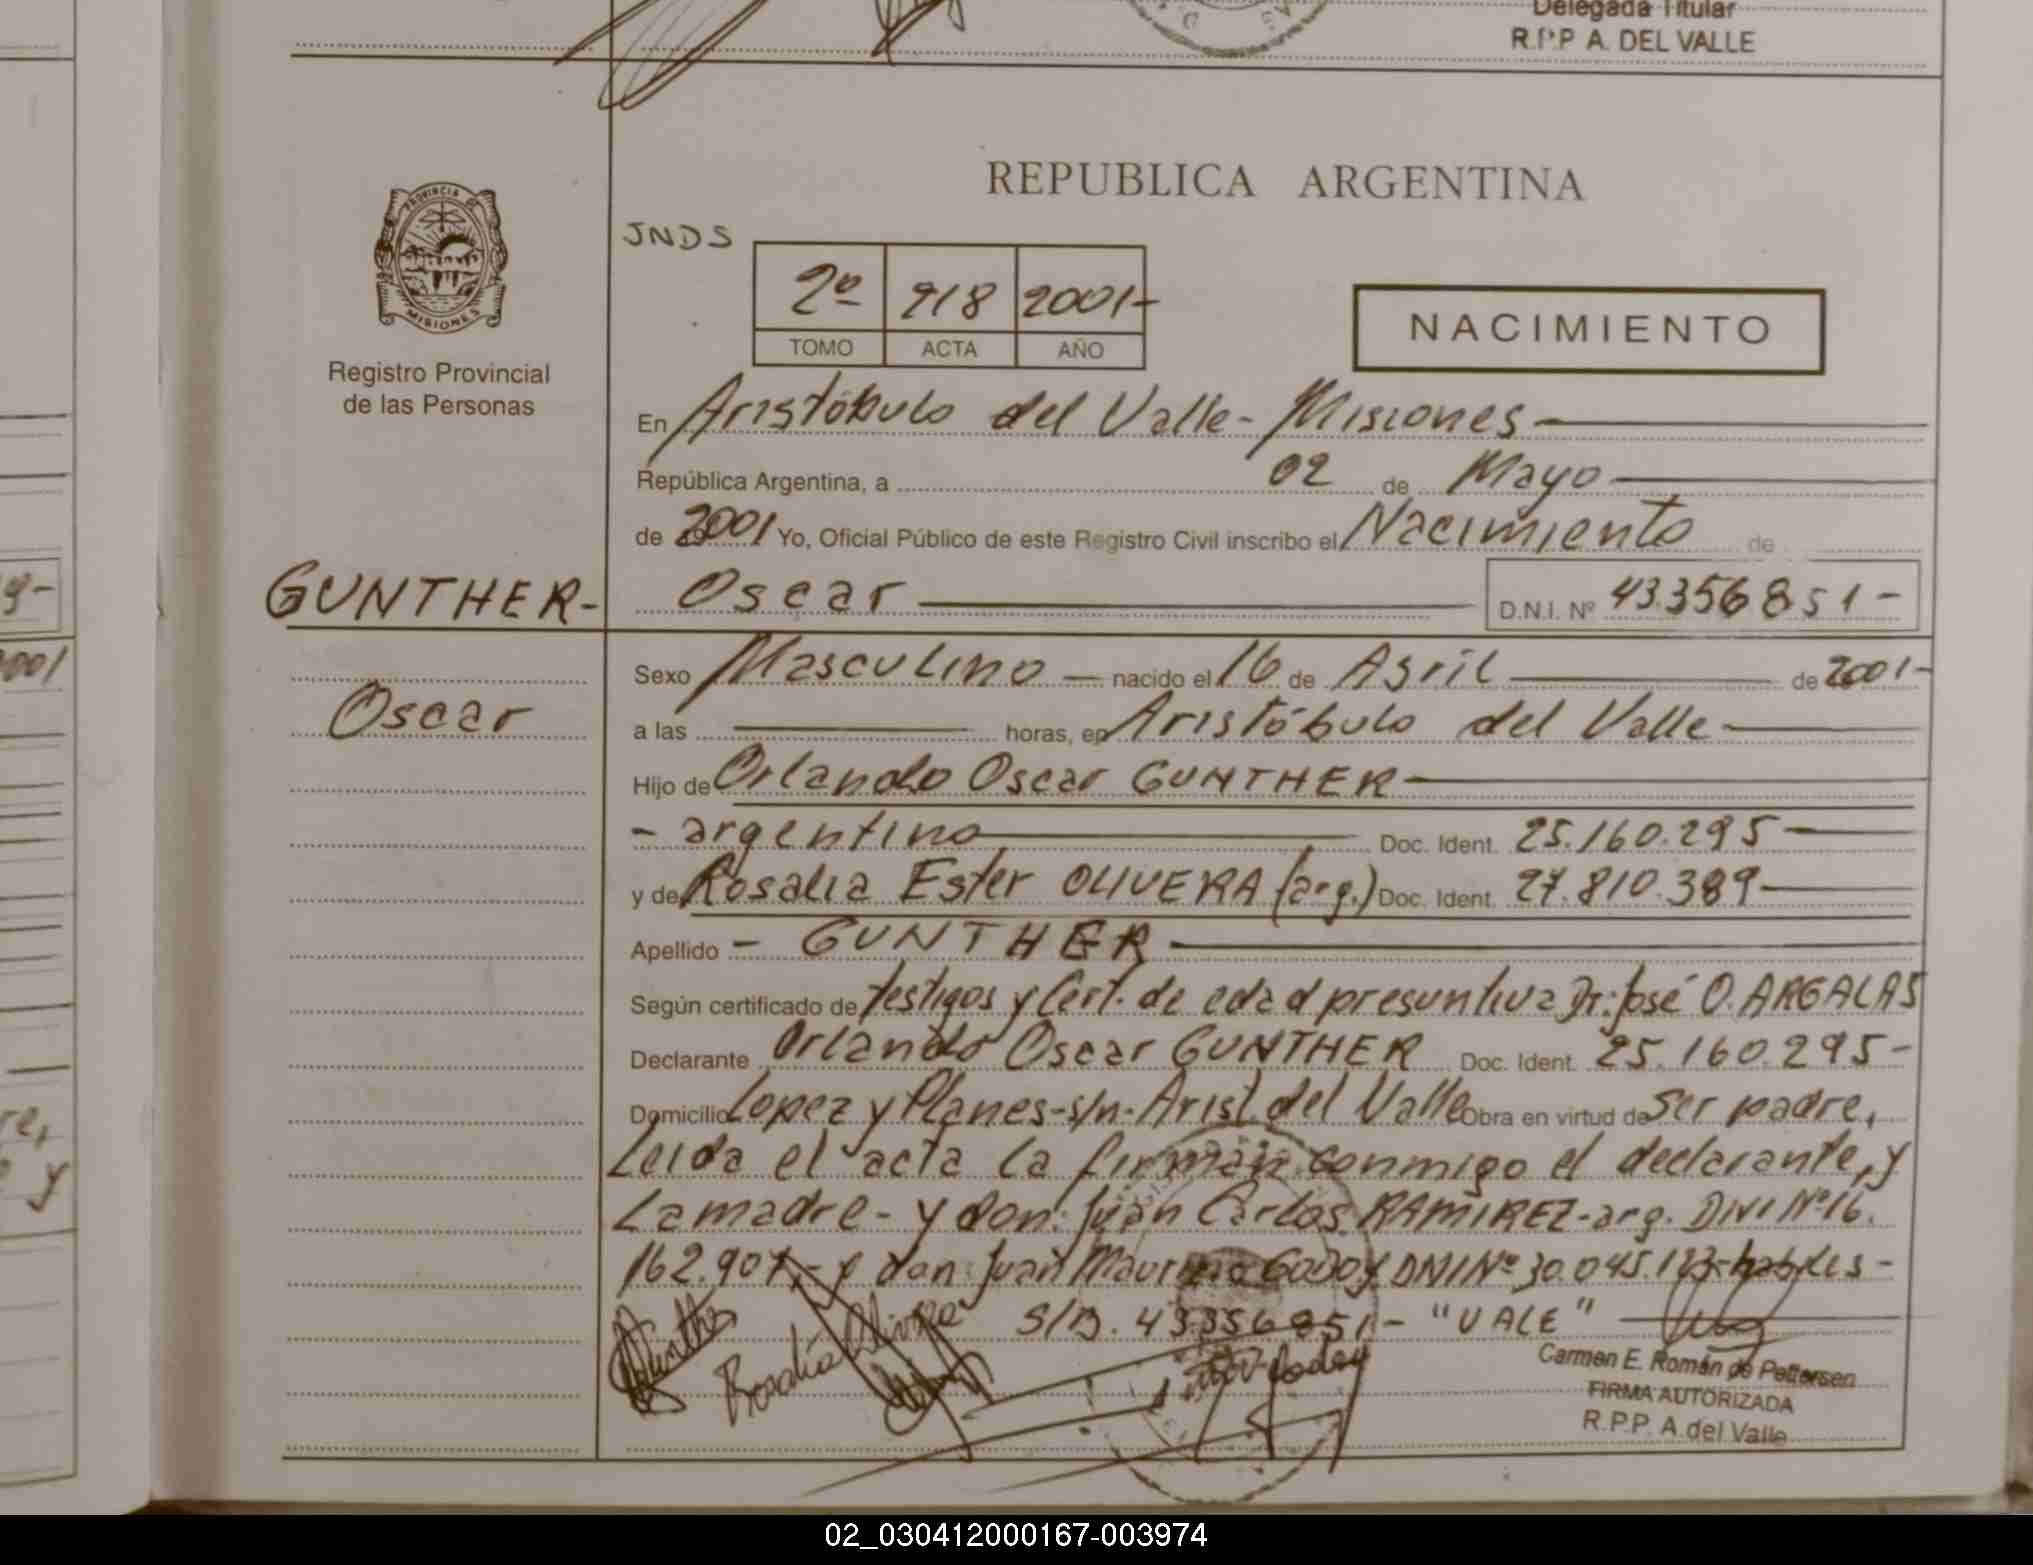 Delegada Titular
R.P.P A. DEL VALLE
PROVINCIA DE
MISIONES
Registro Provincial
de las Personas
REPUBLICA ARGENTINA
JNDS
2º 918 2001-
TOMO ACTA AÑO
NACIMIENTO
En Aristóbulo del Valle- Misiones
República Argentina, a 02 de Mayo
de 2001 Yo, Oficial Público de este Registro Civil inscribo el Nacimiento de
GUNTHER- Oscar D.N.I. Nº 43.356851-
Oscar
Sexo Masculino nacido el 16 de Abril de 2001-
a las horas, en Aristóbulo del Valle
Hijo de Orlando Oscar GUNTHER
- argentino Doc. Ident. 25.160.295
y de Rosalia Ester OLIVERA (arg.) Doc. Ident. 27.810.389
Apellido - GUNTHER
Según certificado de testigos y Cert. de edad presuntiva Dr: José O. ARGALAS
Declarante Orlando Oscar GUNTHER Doc. Ident. 25.160.295-
Domicilio Lopez y Planes-s/n-Arist. del Valle Obra en virtud de Ser padre,
Leida el acta la firman conmigo el declarante, y
La madre- y don: Juan Carlos RAMIREZ-arg. DNI Nº 16.
162.907,- y don: Juan GODOY DNI Nº 30.045. habiles-
S/B. 43356851- "VALE"
Gunther
Rosalía Olivera
Godoy
Carmen E. Román de Pettersen
FIRMA AUTORIZADA
R.P.P. A.del Valle
9-
2001
re,
y
02_030412000167-003974